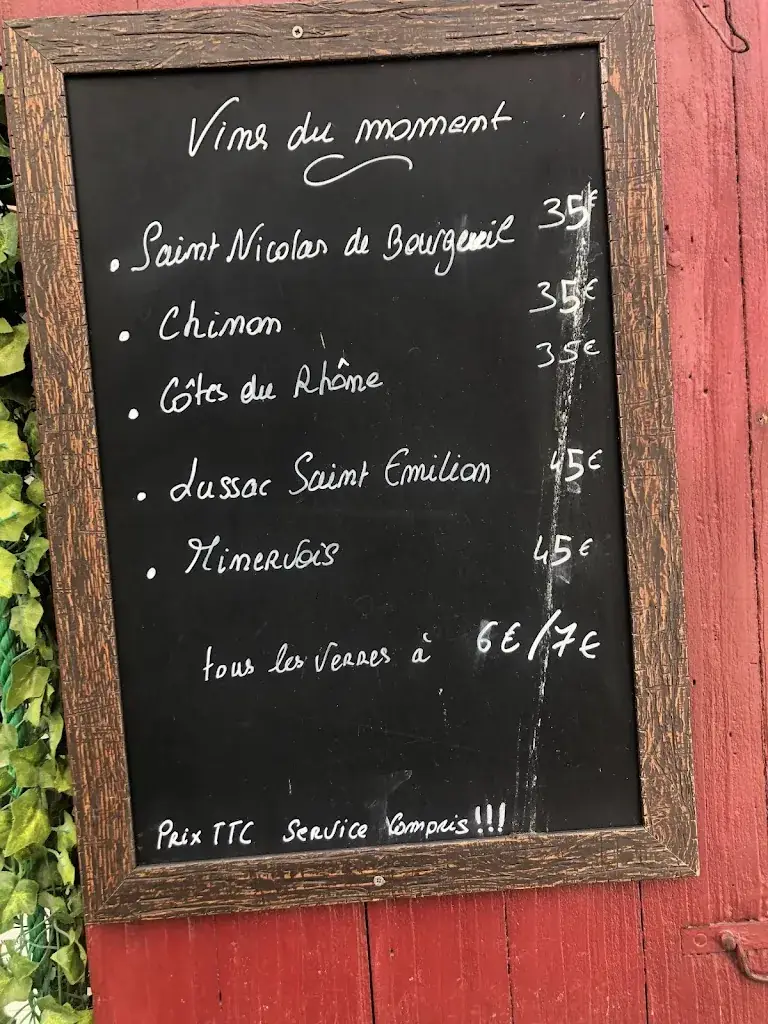 Vins du moment
• Saint Nicolas de Bourgueil 35€
• Chinon 35€
• Côtes du Rhône 35€
• Lussac Saint Emilion 45€
• Minervois 45€
tous les verres à 6€/7€
Prix TTC Service Compris!!!